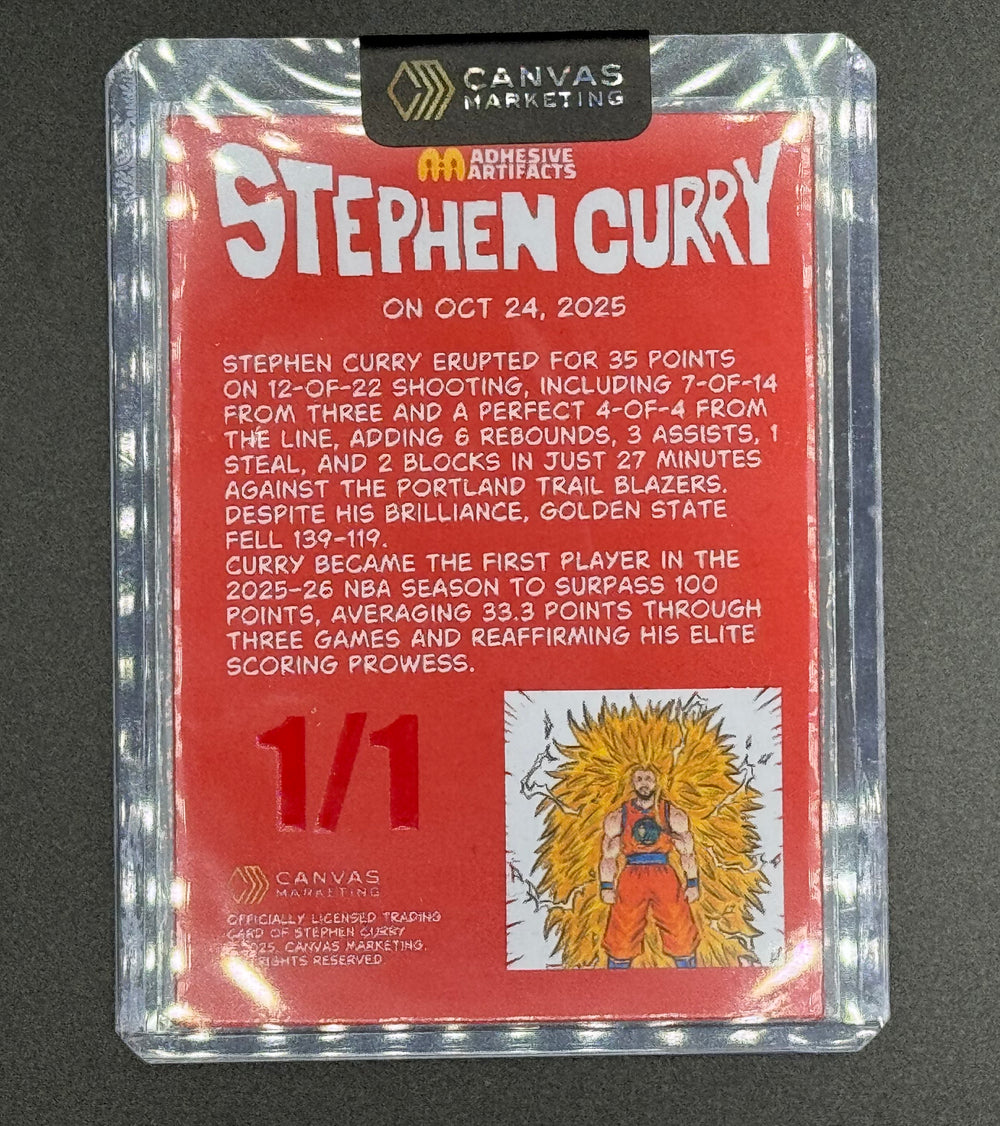 CANVAS
MARKETING
ADHESIVE
ARTIFACTS
STEPHEN CURRY
ON OCT 24, 2025
STEPHEN CURRY ERUPTED FOR 35 POINTS
ON 12-OF-22 SHOOTING, INCLUDING 7-OF-14
FROM THREE AND A PERFECT 4-OF-4 FROM
THE LINE, ADDING 6 REBOUNDS, 3 ASSISTS, 1
STEAL, AND 2 BLOCKS IN JUST 27 MINUTES
AGAINST THE PORTLAND TRAIL BLAZERS.
DESPITE HIS BRILLIANCE, GOLDEN STATE
FELL 139-119.
CURRY BECAME THE FIRST PLAYER IN THE
2025-26 NBA SEASON TO SURPASS 100
POINTS, AVERAGING 33.3 POINTS THROUGH
THREE GAMES AND REAFFIRMING HIS ELITE
SCORING PROWESS.
1/1
CANVAS
MARKETING
OFFICIALLY LICENSED TRADING
CARD OF STEPHEN CURRY
2025. CANVAS MARKETING.
RIGHTS RESERVED